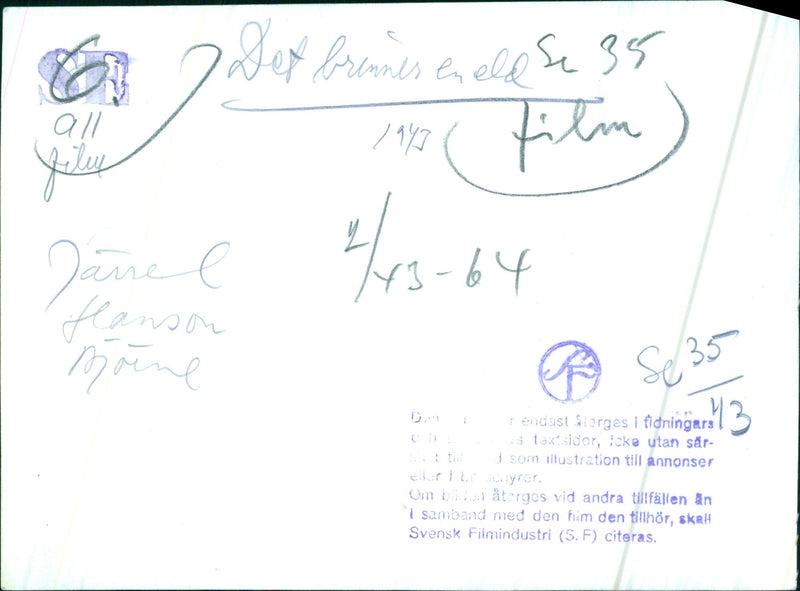 SF
6.
all
film
Det brinner en eld Se 35
1943
(film)
2/43-64
Järrel
Hanson
Björne
SF
Se 35/43
endast återges i tidningars
textsidor, icke utan sär-
som illustration till annonser
eller i
Om bilden återges vid andra tillfällen än
i samband med den film den tillhör, skall
Svensk Filmindustri (S.F) citeras.